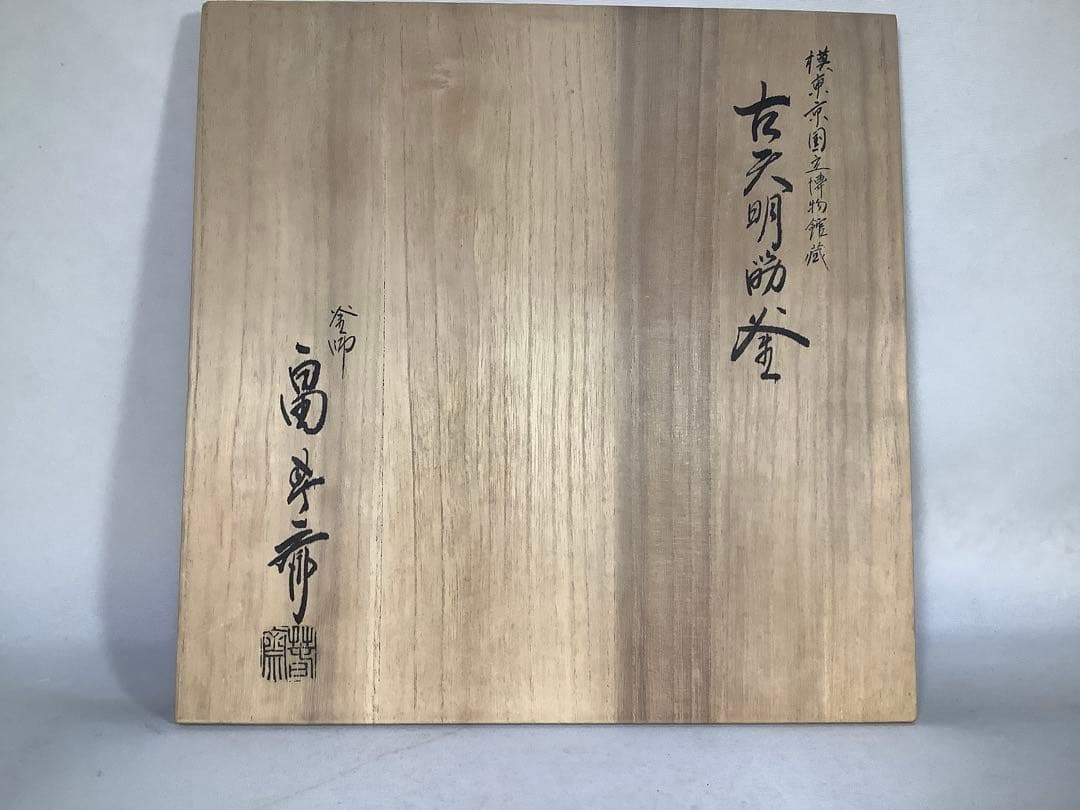 模東京国立博物館蔵
古天明筋釜
釜師
畠春斎